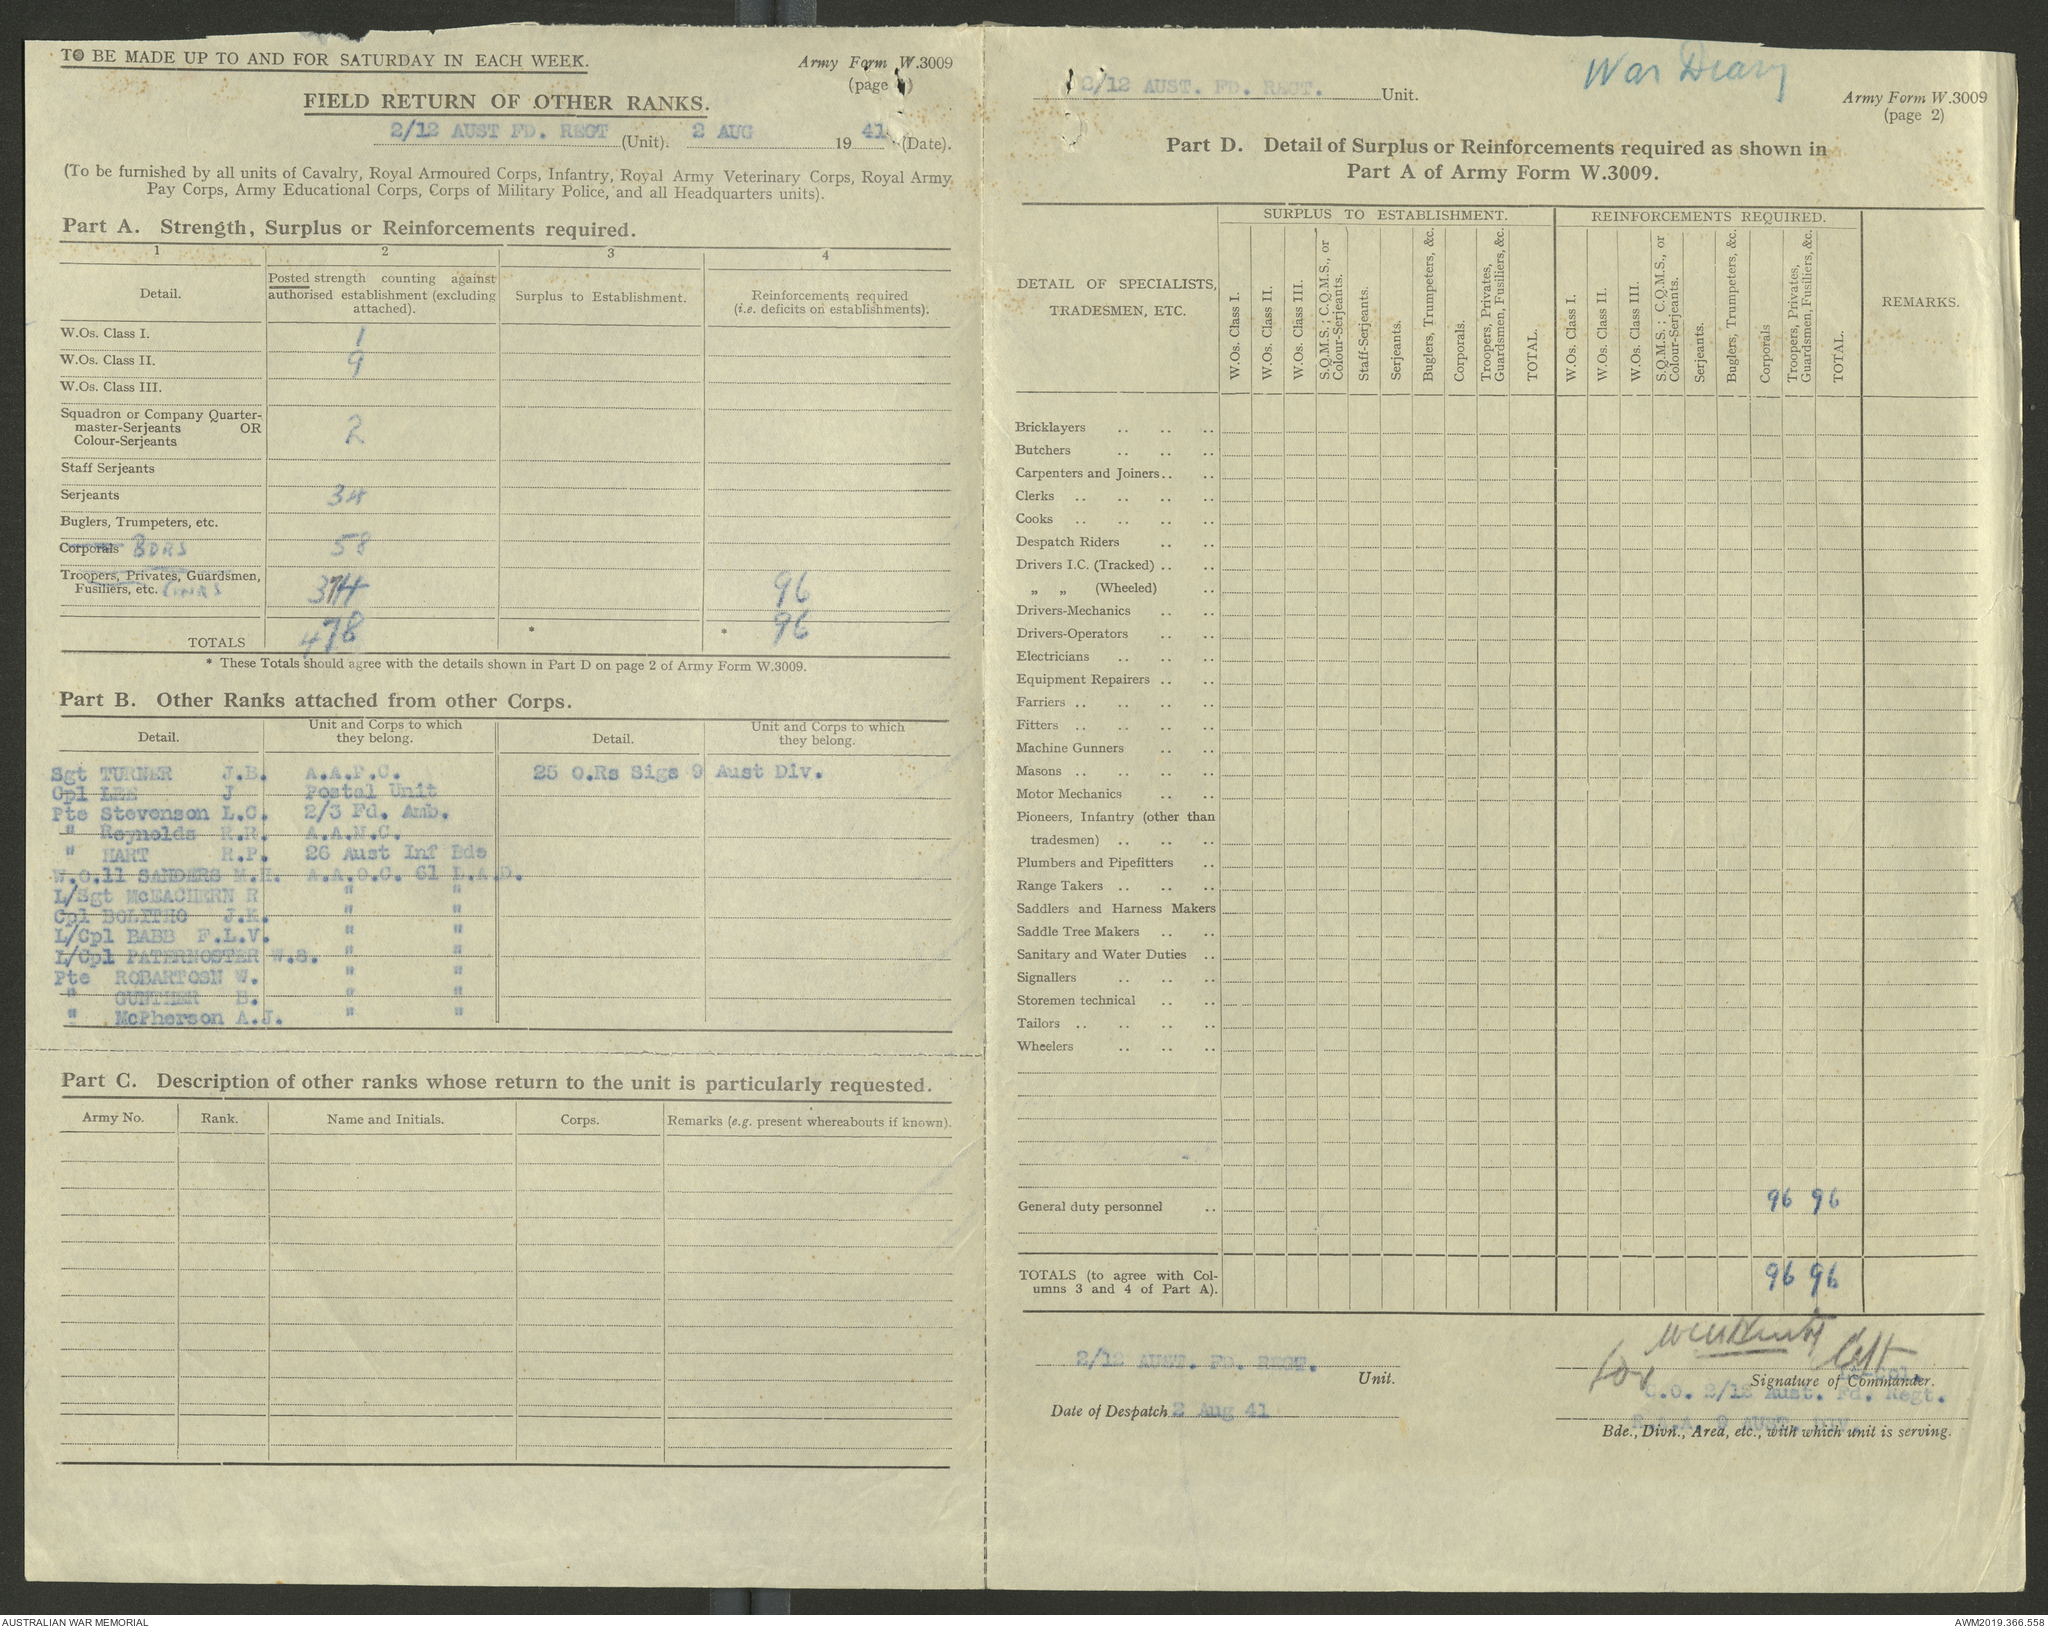 TO BE MADE UP TO AND FOR SATURDAY IN EACH WEEK.
Army Form W.3009
(page 1)
FIELD RETURN OF OTHER RANKS.
2/12 AUST FD. REGT (Unit). 2 AUG 1941 (Date).
(To be furnished by all units of Cavalry, Royal Armoured Corps, Infantry, Royal Army Veterinary Corps, Royal Army
Pay Corps, Army Educational Corps, Corps of Military Police, and all Headquarters units).
Part A. Strength, Surplus or Reinforcements required.
1 2 3 4
Detail.
Posted strength counting against
authorised establishment (excluding
attached).
Surplus to Establishment.
Reinforcements required
(i.e. deficits on establishments).
W.Os. Class I. 1
W.Os. Class II. 9
W.Os. Class III.
Squadron or Company Quarter-
master-Serjeants OR
Colour-Serjeants 2
Staff Serjeants
Serjeants 34
Buglers, Trumpeters, etc.
Corporals BDRS 58
Troopers, Privates, Guardsmen,
Fusiliers, etc. GNRS 374 96
TOTALS 478 * * 96
* These Totals should agree with the details shown in Part D on page 2 of Army Form W.3009.
Part B. Other Ranks attached from other Corps.
Detail.
Unit and Corps to which
they belong.
Detail.
Unit and Corps to which
they belong.
Sgt TURNER J.B. A.A.P.C. 25 O.Rs Sigs 9 Aust Div.
Cpl LEE J Postal Unit
Pte Stevenson L.C. 2/3 Fd. Amb.
" Reynolds R.R. A.A.M.C.
" HART R.P. 26 Aust Inf Bde
W.O.11 SANDERS M.H. A.A.O.C. 61 L.A.D.
L/Sgt McEACHERN R " "
Cpl BOLITHO J.K. " "
L/Cpl BABB F.L.V. " "
L/Cpl PATERNOSTER W.S. " "
Pte ROBARTOSN W. " "
" GUNTHER E. " "
" McPherson A.J. " "
Part C. Description of other ranks whose return to the unit is particularly requested.
Army No. Rank. Name and Initials. Corps. Remarks (e.g. present whereabouts if known).
War Diary
2/12 AUST. FD. REGT. Unit.
Army Form W.3009
(page 2)
Part D. Detail of Surplus or Reinforcements required as shown in
Part A of Army Form W.3009.
DETAIL OF SPECIALISTS,
TRADESMEN, ETC.
SURPLUS TO ESTABLISHMENT.
W.Os. Class I.
W.Os. Class II.
W.Os. Class III.
S.Q.M.S.; C.Q.M.S., or
Colour-Serjeants.
Staff-Serjeants.
Serjeants.
Buglers, Trumpeters, &c.
Corporals.
Troopers, Privates,
Guardsmen, Fusiliers, &c.
TOTAL.
REINFORCEMENTS REQUIRED.
W.Os. Class I.
W.Os. Class II.
W.Os. Class III.
S.Q.M.S.; C.Q.M.S., or
Colour-Serjeants.
Serjeants.
Buglers, Trumpeters, &c.
Corporals
Troopers, Privates,
Guardsmen, Fusiliers, &c.
TOTAL.
REMARKS.
Bricklayers .. .. ..
Butchers .. .. ..
Carpenters and Joiners .. ..
Clerks .. .. .. ..
Cooks .. .. .. ..
Despatch Riders .. ..
Drivers I.C. (Tracked) .. ..
„ „ (Wheeled) ..
Drivers-Mechanics .. ..
Drivers-Operators .. ..
Electricians .. .. ..
Equipment Repairers .. ..
Farriers .. .. .. ..
Fitters .. .. .. ..
Machine Gunners .. ..
Masons .. .. .. ..
Motor Mechanics .. ..
Pioneers, Infantry (other than
tradesmen) .. .. ..
Plumbers and Pipefitters ..
Range Takers .. .. ..
Saddlers and Harness Makers
Saddle Tree Makers .. ..
Sanitary and Water Duties ..
Signallers .. .. ..
Storemen technical .. ..
Tailors .. .. .. ..
Wheelers .. .. ..
General duty personnel .. 96 96
TOTALS (to agree with Col-
umns 3 and 4 of Part A). 96 96
2/12 AUST. FD. REGT.
Unit.
Date of Despatch 2 Aug 41
for Capt
Signature of Commander.
C.O. 2/12 Aust. Fd. Regt.
R.A.A. 9 AUST. DIV.
Bde., Divn., Area, etc., with which unit is serving.
AUSTRALIAN WAR MEMORIAL
AWM2019.366.558